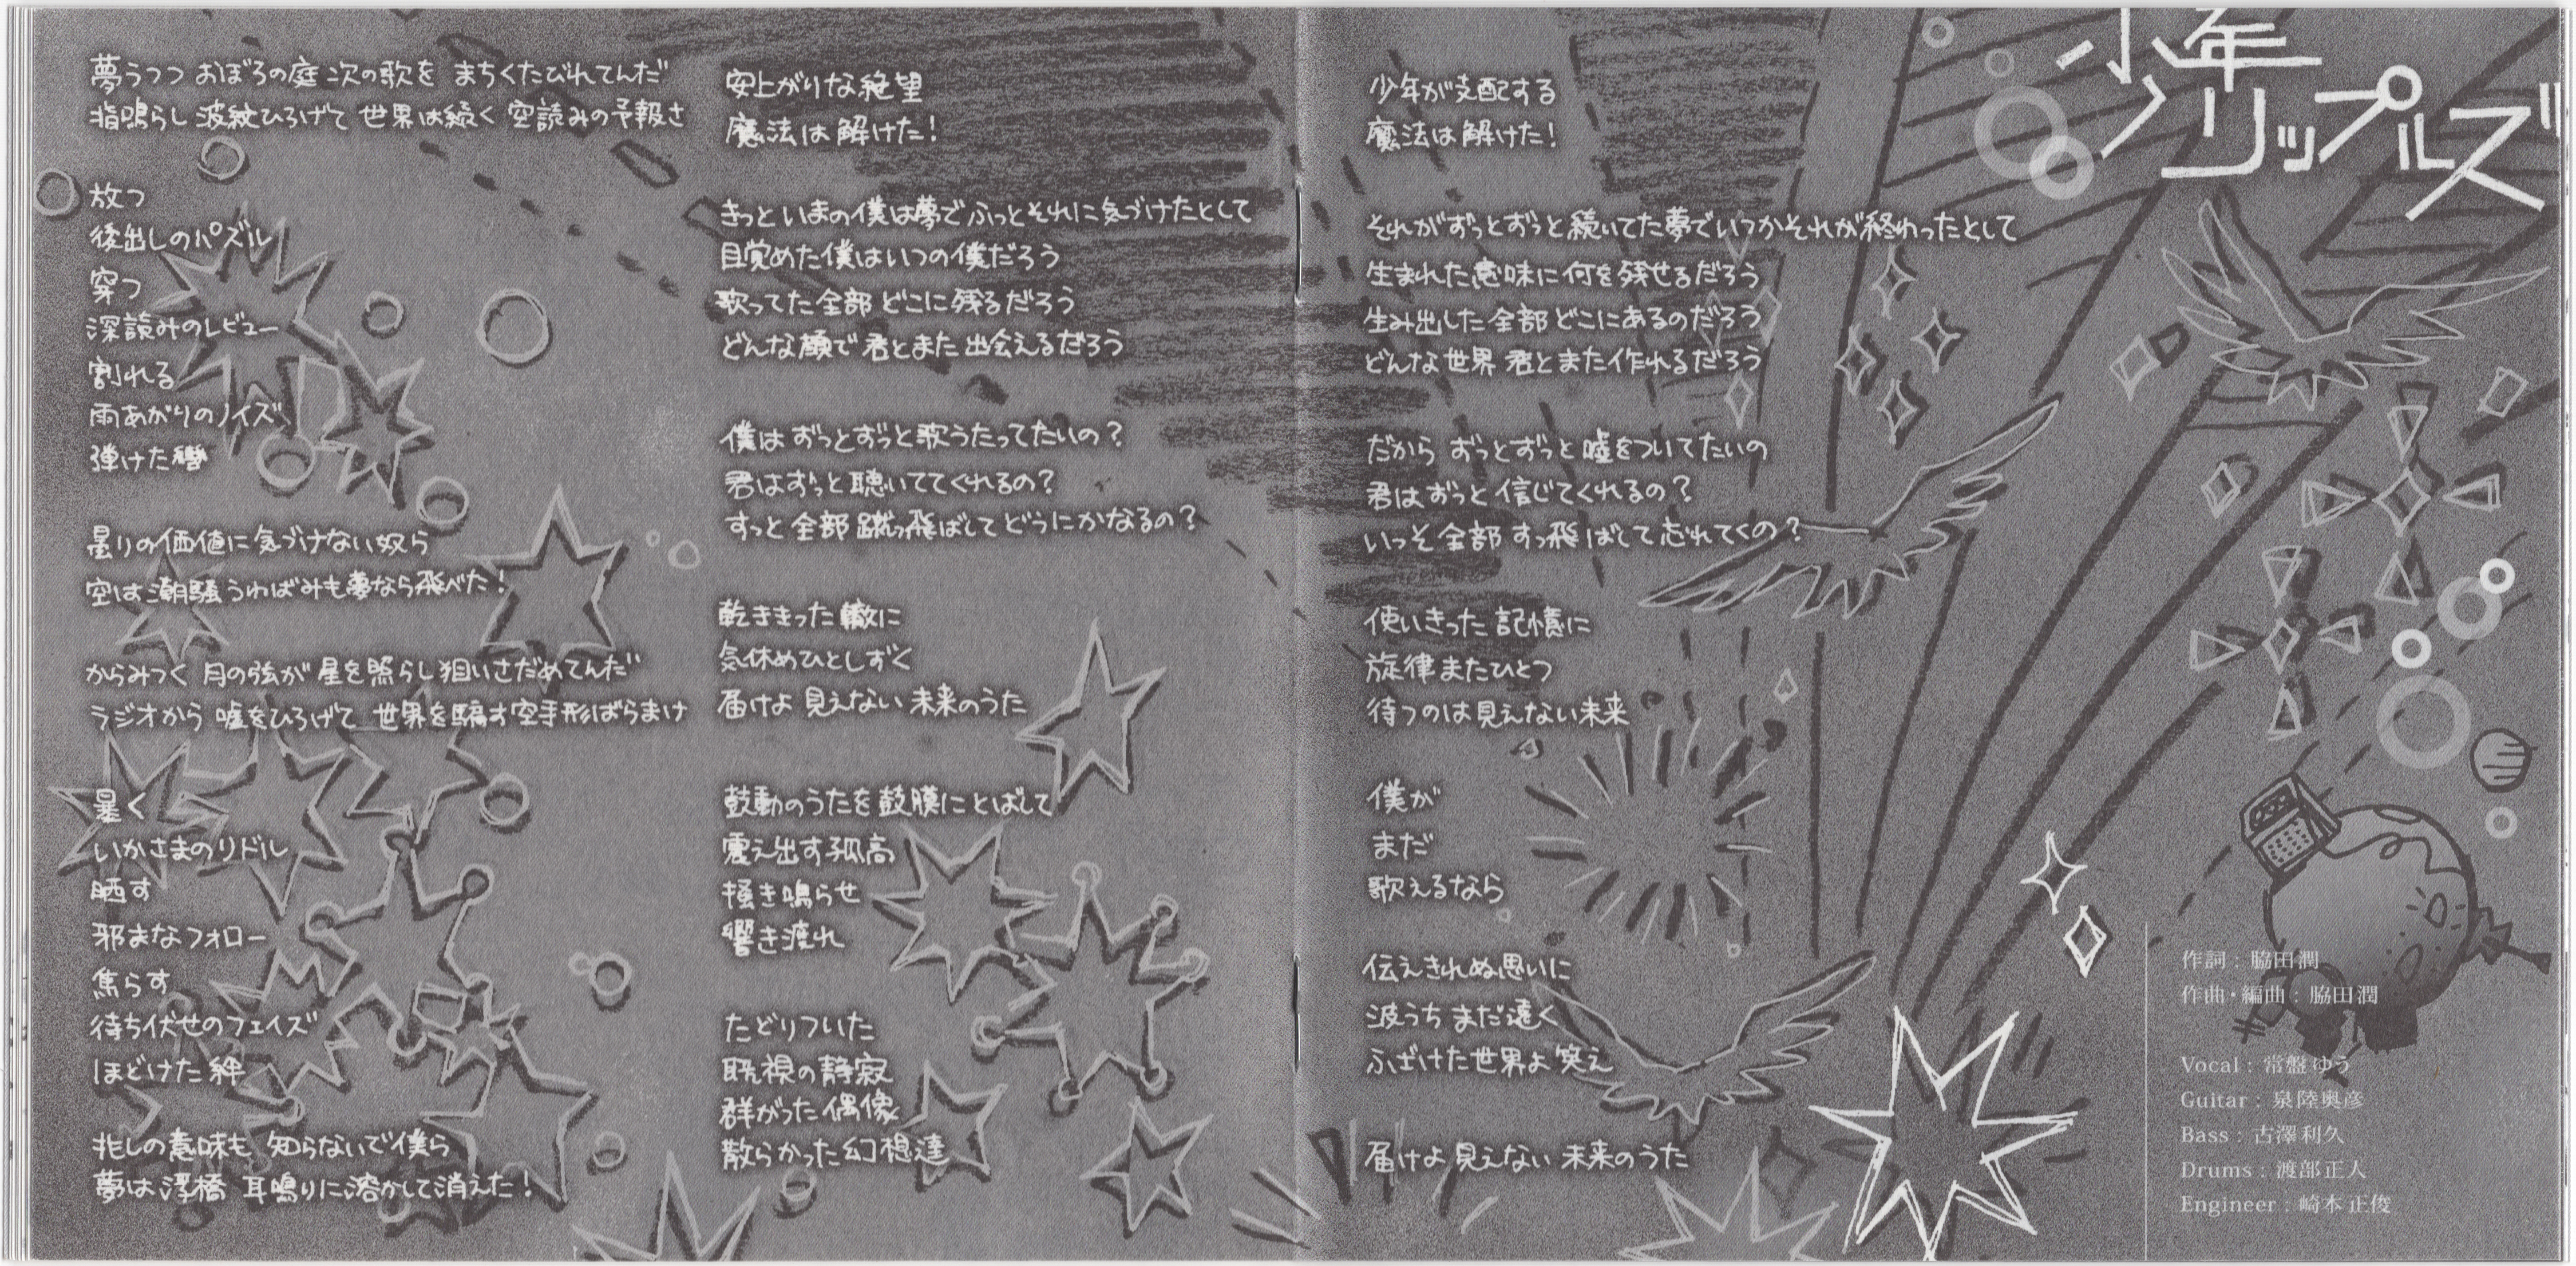 少年リップルズ
夢うつつ おぼろの庭 次の歌を まちくたびれてんだ
指鳴らし 波紋ひろげて 世界は続く 空読みの予報さ
放つ
後出しのパズル
穿つ
深読みのレビュー
割れる
雨あがりのノイズ
弾けた轡
曇りの価値に気づけない奴ら
空は潮騒 うわばみも夢なら飛べた!
からみつく 月の弦が 星を照らし 狙いさだめてんだ
ラジオから 嘘をひろげて 世界を騙す 空手形ばらまけ
暴く
いかさまのリドル
晒す
邪まなフォロー
焦らす
待ち伏せのフェイズ
ほどけた絆
兆しの意味も 知らないで僕ら
夢は浮橋 耳鳴りに溶かして消えた!
安上がりな絶望
魔法は解けた!
きっといまの僕は夢でふっとそれに気づけたとして
目覚めた僕はいつの僕だろう
歌ってた全部 どこに残るだろう
どんな顔で 君とまた出会えるだろう
僕は ずっとずっと歌うたってたいの?
君はずっと聴いててくれるの?
すっと 全部 蹴っ飛ばして どうにかなるの?
乾ききった轍に
気休めひとしずく
届けよ 見えない 未来のうた
鼓動のうたを鼓膜にとばして
震え出す孤高
掻き鳴らせ
響き渡れ
たどりついた
既視の静寂
群がった偶像
散らかった幻想達
少年が支配する
魔法は解けた!
それがずっとずっと続いてた夢でいつかそれが終わったとして
生まれた意味に何を残せるだろう
生み出した全部 どこにあるのだろう
どんな世界 君とまた作れるだろう
だから ずっとずっと 嘘をついてたいの
君は ずっと信じてくれるの?
いっそ 全部 すっ飛ばして忘れてくの?
使いきった記憶に
旋律またひとつ
待つのは見えない未来
僕が
まだ
歌えるなら
伝えきれぬ思いに
波うち まだ遠く
ふざけた世界よ 笑え
届けよ 見えない 未来のうた
作詞：脇田潤
作曲・編曲：脇田潤
Vocal：常盤ゆう
Guitar：泉陸奥彦
Bass：古澤利久
Drums：渡部正人
Engineer：崎本正俊